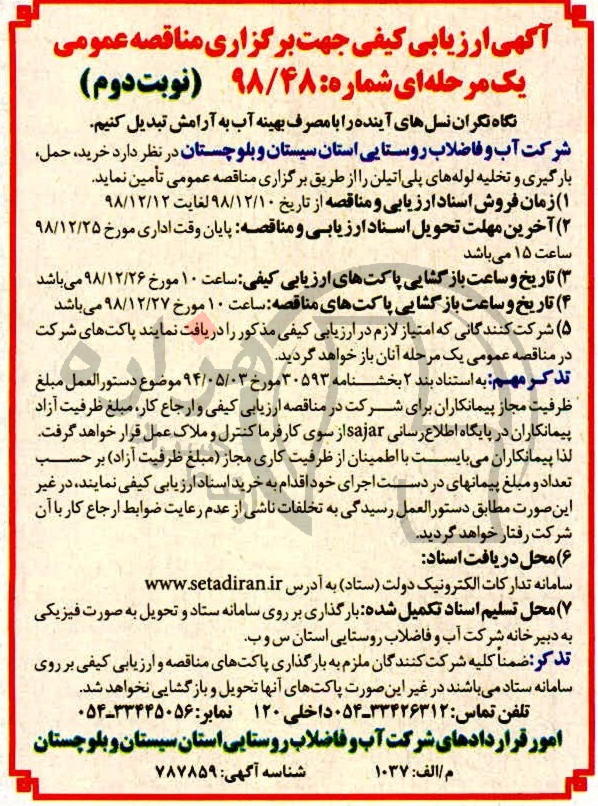 آگهی ارزیابی کیفی جهت برگزاری مناقصه عمومی
یک مرحله‌ای شماره: ۹۸/۴۸ (نوبت دوم)
نگاه نگران نسل‌های آینده را با مصرف بهینه آب به آرامش تبدیل کنیم.
شرکت آب و فاضلاب روستایی استان سیستان و بلوچستان در نظر دارد خرید، حمل،
بارگیری و تخلیه لوله‌های پلی‌اتیلن را از طریق برگزاری مناقصه عمومی تأمین نماید.
۱) زمان فروش اسناد ارزیابی و مناقصه از تاریخ ۹۸/۱۲/۱۰ لغایت ۹۸/۱۲/۱۲
۲) آخرین مهلت تحویل اسناد ارزیابی و مناقصه: پایان وقت اداری مورخ ۹۸/۱۲/۲۵
ساعت ۱۵ می‌باشد
۳) تاریخ و ساعت بازگشایی پاکت‌های ارزیابی کیفی: ساعت ۱۰ مورخ ۹۸/۱۲/۲۶ می‌باشد
۴) تاریخ و ساعت بازگشایی پاکت‌های مناقصه: ساعت ۱۰ مورخ ۹۸/۱۲/۲۷ می‌باشد
۵) شرکت‌کنندگانی که امتیاز لازم در ارزیابی کیفی مذکور را دریافت نمایند پاکت‌های شرکت
در مناقصه عمومی یک مرحله آنان باز خواهد گردید.
تذکر مهم: به استناد بند ۲ بخشنامه ۳۰۵۹۳ مورخ ۹۴/۰۵/۰۳ موضوع دستورالعمل مبلغ
ظرفیت مجاز پیمانکاران برای شرکت در مناقصه ارزیابی کیفی و ارجاع کار، مبلغ ظرفیت آزاد
پیمانکاران در پایگاه اطلاع‌رسانی sajar از سوی کارفرما کنترل و ملاک عمل قرار خواهد گرفت.
لذا پیمانکاران می‌بایست با اطمینان از ظرفیت کاری مجاز (مبلغ ظرفیت آزاد) بر حسب
تعداد و مبلغ پیمانهای در دست اجرای خود اقدام به خرید اسناد ارزیابی کیفی نمایند، در غیر
این‌صورت مطابق دستورالعمل رسیدگی به تخلفات ناشی از عدم رعایت ضوابط ارجاع کار با آن
شرکت رفتار خواهد گردید.
۶) محل دریافت اسناد:
سامانه تدارکات الکترونیک دولت (ستاد) به آدرس www.setadiran.ir
۷) محل تسلیم اسناد تکمیل شده: بارگذاری بر روی سامانه ستاد و تحویل به صورت فیزیکی
به دبیرخانه شرکت آب و فاضلاب روستایی استان س و ب.
تذکر: ضمناً کلیه شرکت‌کنندگان ملزم به بارگذاری پاکت‌های مناقصه و ارزیابی کیفی بر روی
سامانه ستاد می‌باشند در غیر این‌صورت پاکت‌های آنها تحویل و بازگشایی نخواهد شد.
تلفن تماس: ۳۳۴۲۶۳۱۲-۰۵۴ داخلی ۱۲۰ نمابر: ۳۳۴۴۵۰۵۶-۰۵۴
امور قراردادهای شرکت آب و فاضلاب روستایی استان سیستان و بلوچستان
م/الف: ۱۰۳۷ شناسه آگهی: ۷۸۷۸۵۹
هزاره